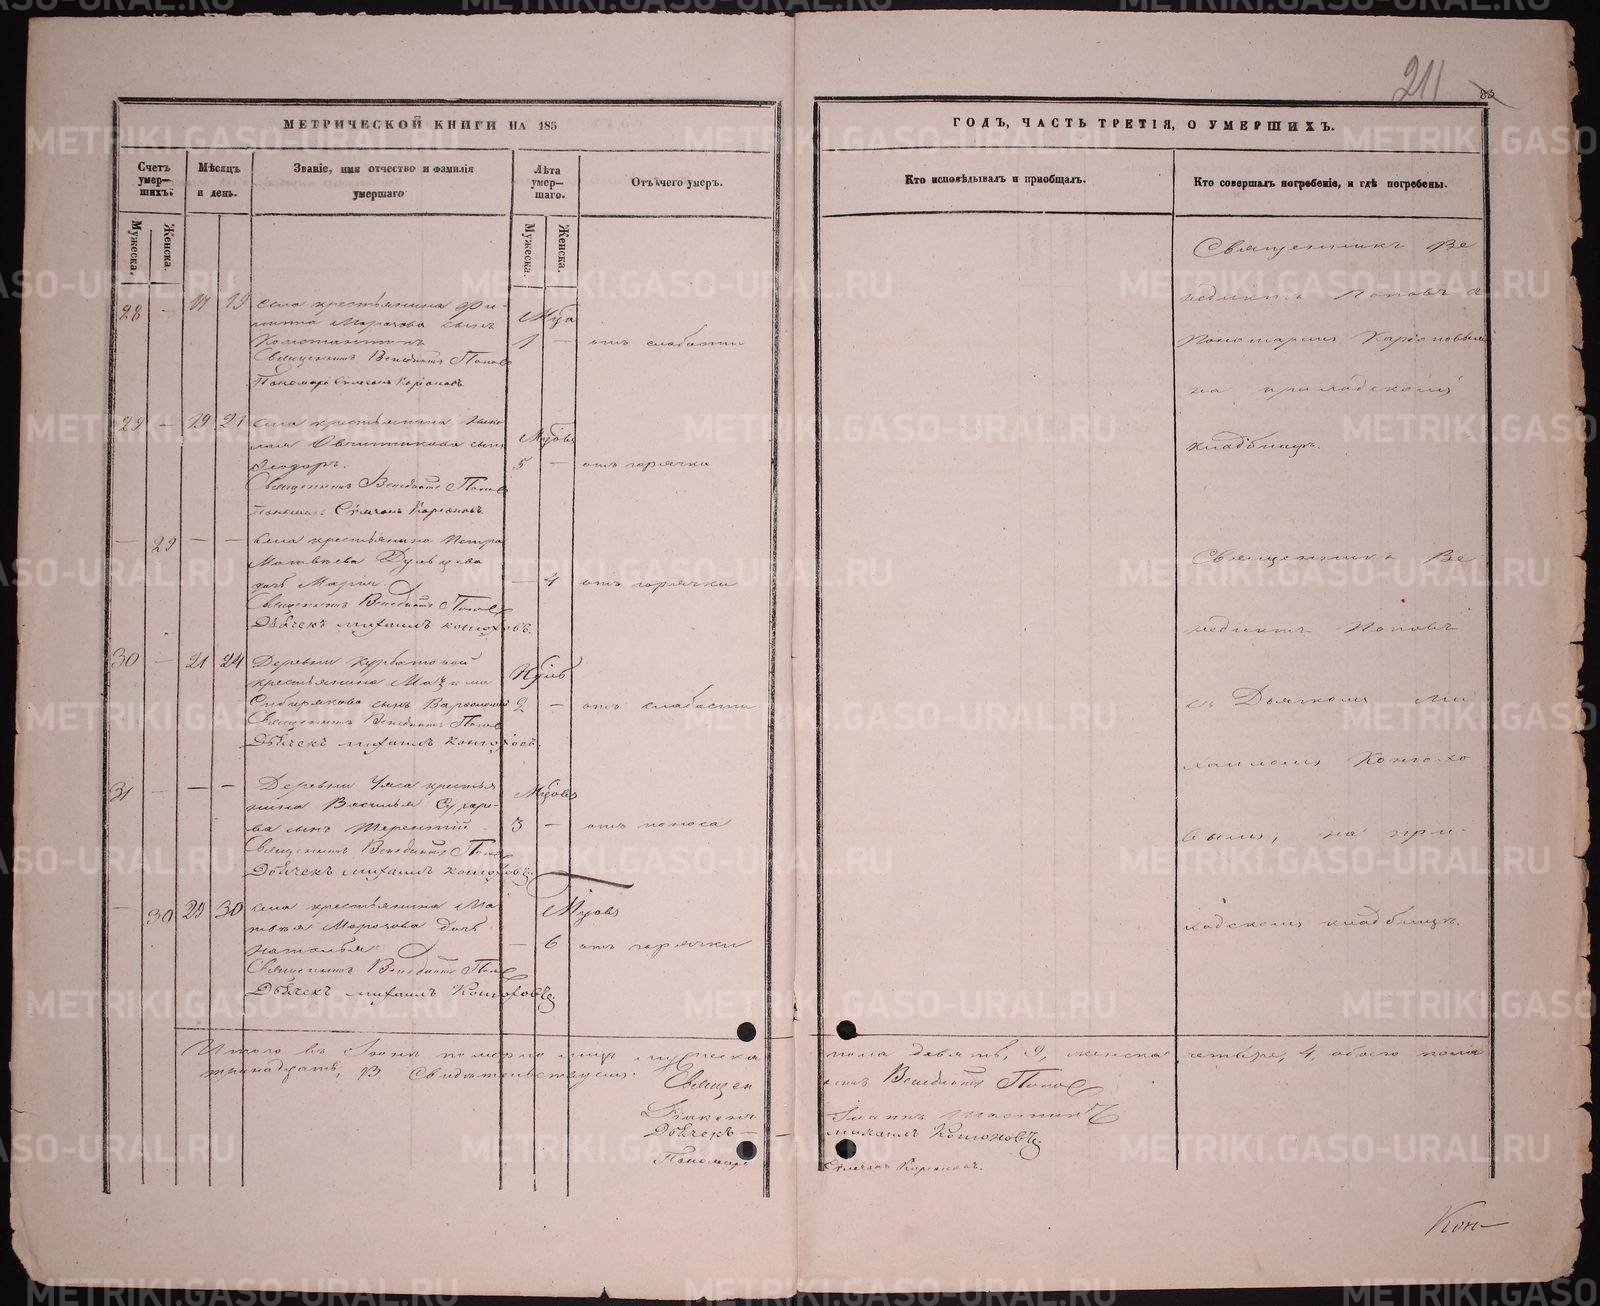 211
83
МЕТРИЧЕСКОЙ КНИГИ НА 185
ГОДЪ, ЧАСТЬ ТРЕТІЯ, О УМЕРШИХЪ.
Счетъ умер-шихъ.
Мѣсяцъ и день.
Званіе, имя отчество и фамилія умершаго
Лѣта умер-шаго.
Отъ чего умеръ.
Кто исповѣдывалъ и пріобщалъ.
Кто совершалъ погребеніе, и гдѣ погребены.
Мужеска.
Женска.
Мужеска.
Женска.
28 — 17 19 села крестьянина Фи-
липпа Морозова сынъ
Константинъ 1 — отъ слабости
Священникъ Венедиктъ Поповъ
Пономарь Симеонъ
29 — 19 21 села крестьянина
Овчинникова сынъ
Ѳеодоръ. 5 — отъ горячки
Священникъ Венедиктъ Поповъ
Пономарь Симеонъ
— 29 — — села крестьянина Петра
Матвѣева
дочь Марія. — 4 отъ горячки
Священникъ Венедиктъ Поповъ
Дьячекъ Михаилъ Конюховъ.
30 — 21 24 Деревни Курбатовой
крестьянина Максима
Сибирякова сынъ Варѳоломей 2 — отъ слабости
Священникъ Венедиктъ Поповъ
Дьячекъ Михаилъ Конюховъ.
31 — — — Деревни крестья
нина Василья Сухаре-
ва сынъ Терентій 3 — отъ поноса
Священникъ Венедиктъ Поповъ
Дьячекъ Михаилъ Конюховъ
— 30 29 30 села крестьянина Ма
твѣя Морозова дочь
Наталья — 6 отъ горячки
Священникъ Венедиктъ Поповъ
Дьячекъ Михаилъ Конюховъ
Священникъ Ве
недиктъ Поповъ с
Пономаремъ
на приходскомъ
кладбищѣ.
Священникъ Ве
недиктъ Поповъ
съ Дьячкомъ Ми
хаиломъ Конюхо
вымъ, на при-
ходскомъ кладбищѣ.
Итого въ Іюнѣ померло лицъ мужеска пола девять, 9, женска четыре, 4, обоего пола
тринадцать, 13. Свидѣтельствуемъ.
Священникъ Венедиктъ Поповъ
Діаконъ Іоаннъ
Дьячекъ — Михаилъ Конюховъ
Пономарь Симеонъ
Кон—
METRIKI.GASO-URAL.RU